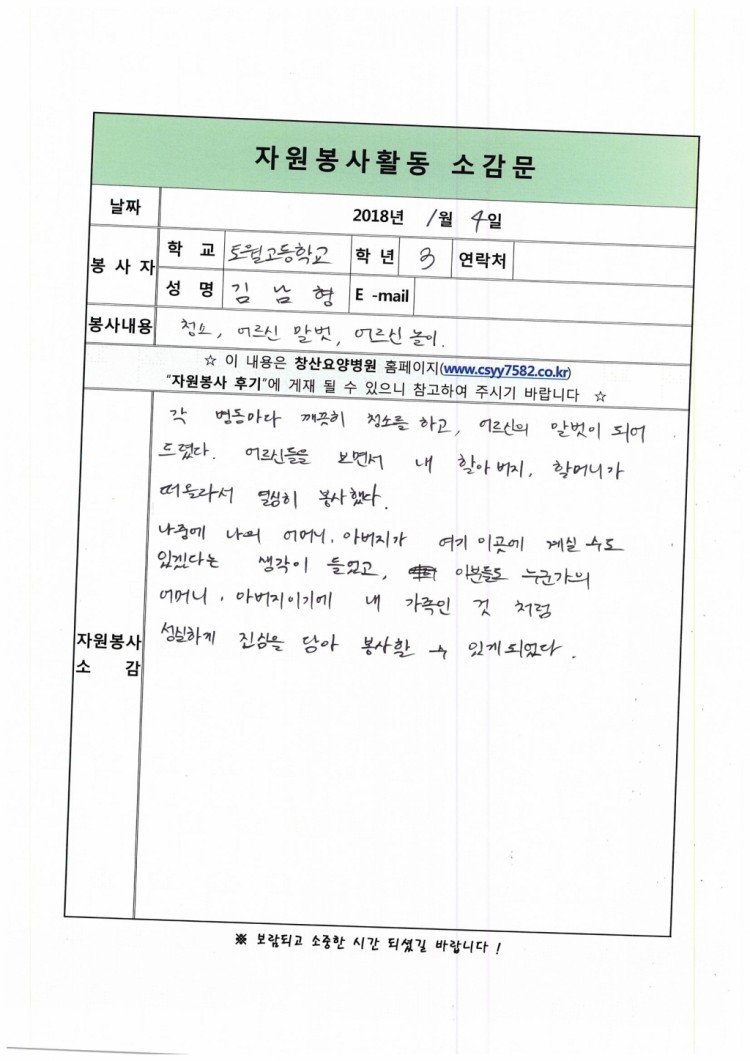 자원봉사활동 소감문
날짜 2018년 1월 4일
봉사자 학교 토월고등학교 학년 3 연락처
성명 김남형 E-mail
봉사내용 청소, 어르신 말벗, 어르신 놀이.
☆ 이 내용은 창산요양병원 홈페이지(www.csyy7582.co.kr)
"자원봉사 후기"에 게재 될 수 있으니 참고하여 주시기 바랍니다 ☆
자원봉사 소감
각 병동마다 깨끗히 청소를 하고, 어르신의 말벗이 되어
드렸다. 어르신들을 보면서 내 할아버지, 할머니가
떠올라서 열심히 봉사했다.
나중에 나의 어머니, 아버지가 여기 이곳에 계실 수도
있겠다는 생각이 들었고, 이분들도 누군가의
어머니, 아버지이기에 내 가족인 것 처럼
성실하게 진심을 담아 봉사할 수 있게 되었다.
※ 보람되고 소중한 시간 되셨길 바랍니다 !